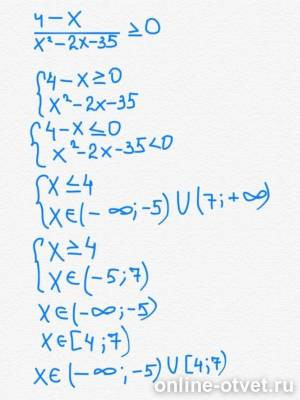 4-x
x²-2x-35 ≥0
{4-x≥0
x²-2x-35
{4-x≤0
x²-2x-35<0
{x≤4
x∈(-∞;-5)∪(7;+∞)
{x≥4
x∈(-5;7)
x∈(-∞;-5)
x∈[4;7)
x∈(-∞;-5)∪[4;7)
online-otvet.ru